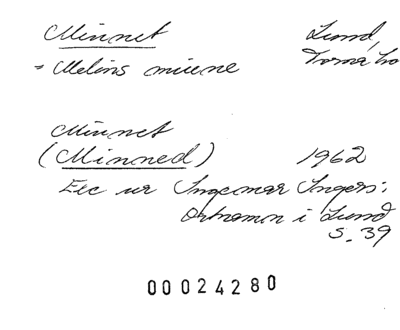 Minnet Lund,
= Melins minne Torna hd
Minnet
(Minned) 1962
Exc ur Ingemar Ingers:
Ortnamn i Lund
S. 39
00024280